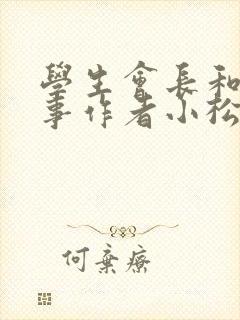 學生會長和
事作者小松
何棄療